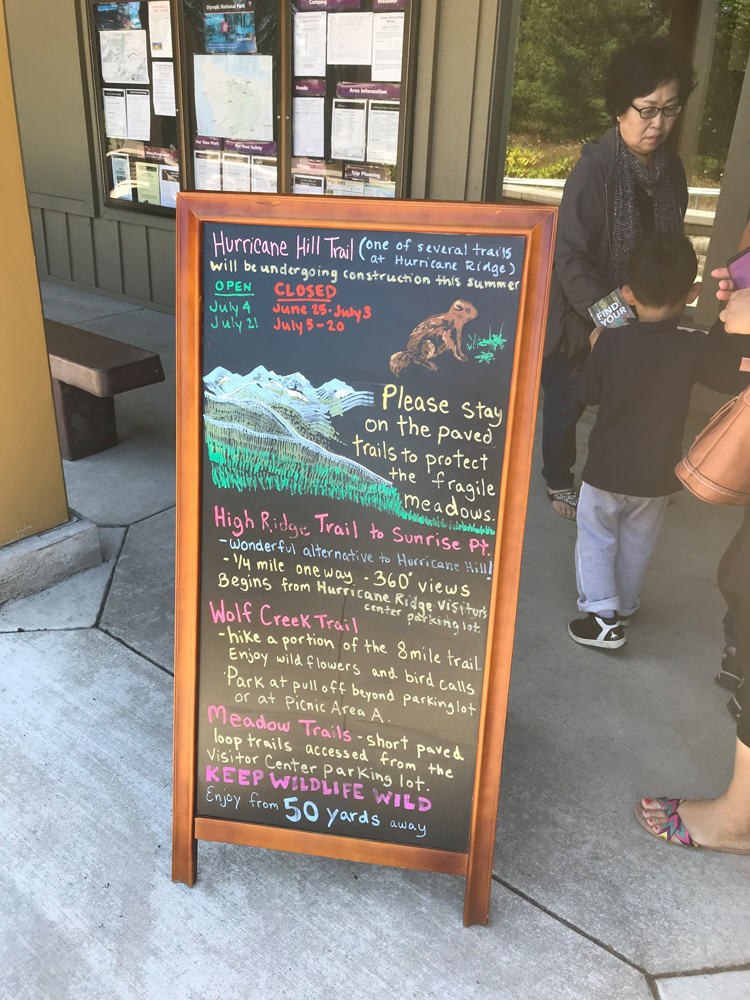 Olympic National Park
Camping
Weather
Roads
Area Information
For Your Park
For Your Safety
Trip Planning
FIND
YOUR
Hurricane Hill Trail (one of several trails
at Hurricane Ridge)
will be undergoing construction this summer
OPEN CLOSED
July 4 June 25-July 3
July 21 July 5-20
Please stay
on the paved
trails to protect
the fragile
meadows.
High Ridge Trail to Sunrise Pt.
-wonderful alternative to Hurricane Hill!
-1/4 mile one way -360° views
Begins from Hurricane Ridge Visitors
center parking lot.
Wolf Creek Trail
-hike a portion of the 8mile trail.
Enjoy wild flowers and bird calls
·Park at pull off beyond parking lot
or at Picnic Area A.
Meadow Trails -short paved
loop trails accessed from the
Visitor Center parking lot.
KEEP WILDLIFE WILD
Enjoy from 50 yards away